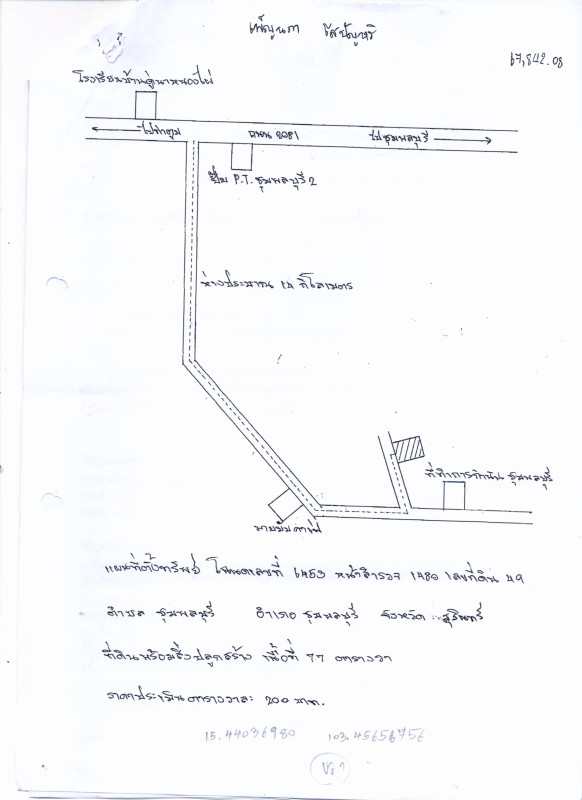 เพ็ญนภา
67,842.08
โรงเรียนบ้านคู่นาหนองไผ่
ไปท่าตูม ถนน 2081 ไปชุมพลบุรี
ปั๊ม P.T. ชุมพลบุรี 2
ห่างประมาณ 14 กิโลเมตร
ที่ทำการกำนัน ชุมพลบุรี
แผนที่ตั้งทรัพย์ โฉนดเลขที่ 6453 หน้าสำรวจ 1480 เลขที่ดิน 49
ตำบล ชุมพลบุรี อำเภอ ชุมพลบุรี จังหวัด สุรินทร์
ที่ดินพร้อมสิ่งปลูกสร้าง เนื้อที่ 77 ตารางวา
ราคาประเมินตารางวาละ 200 บาท.
15.44036980 103.45656756